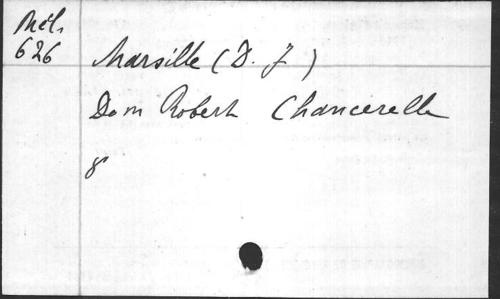 Mél.
626
Marsille (D. J)
Dom Robert Chancerelle
8